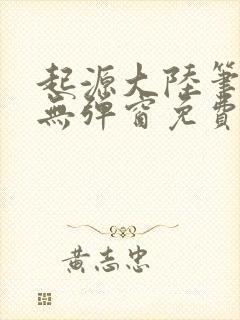 起源大陸筆
無彈窗免費
黃志忠